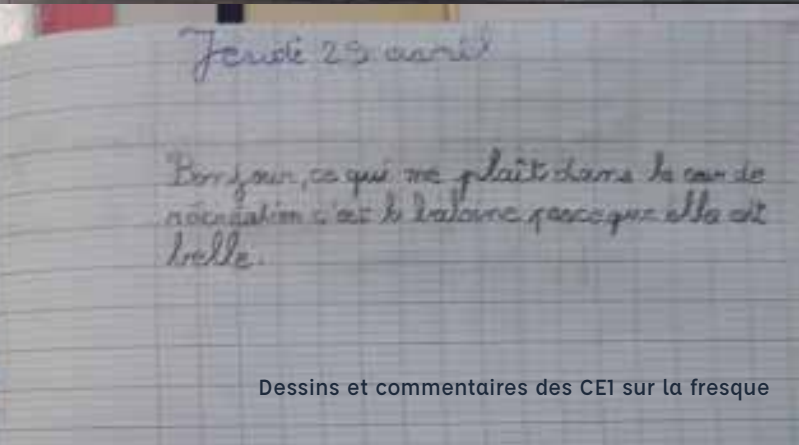 Jeudi 29 avril
Bonjour, ce qui me plaît dans la cour de
récréation c'est la baleine parce que elle est
belle.
Dessins et commentaires des CE1 sur la fresque